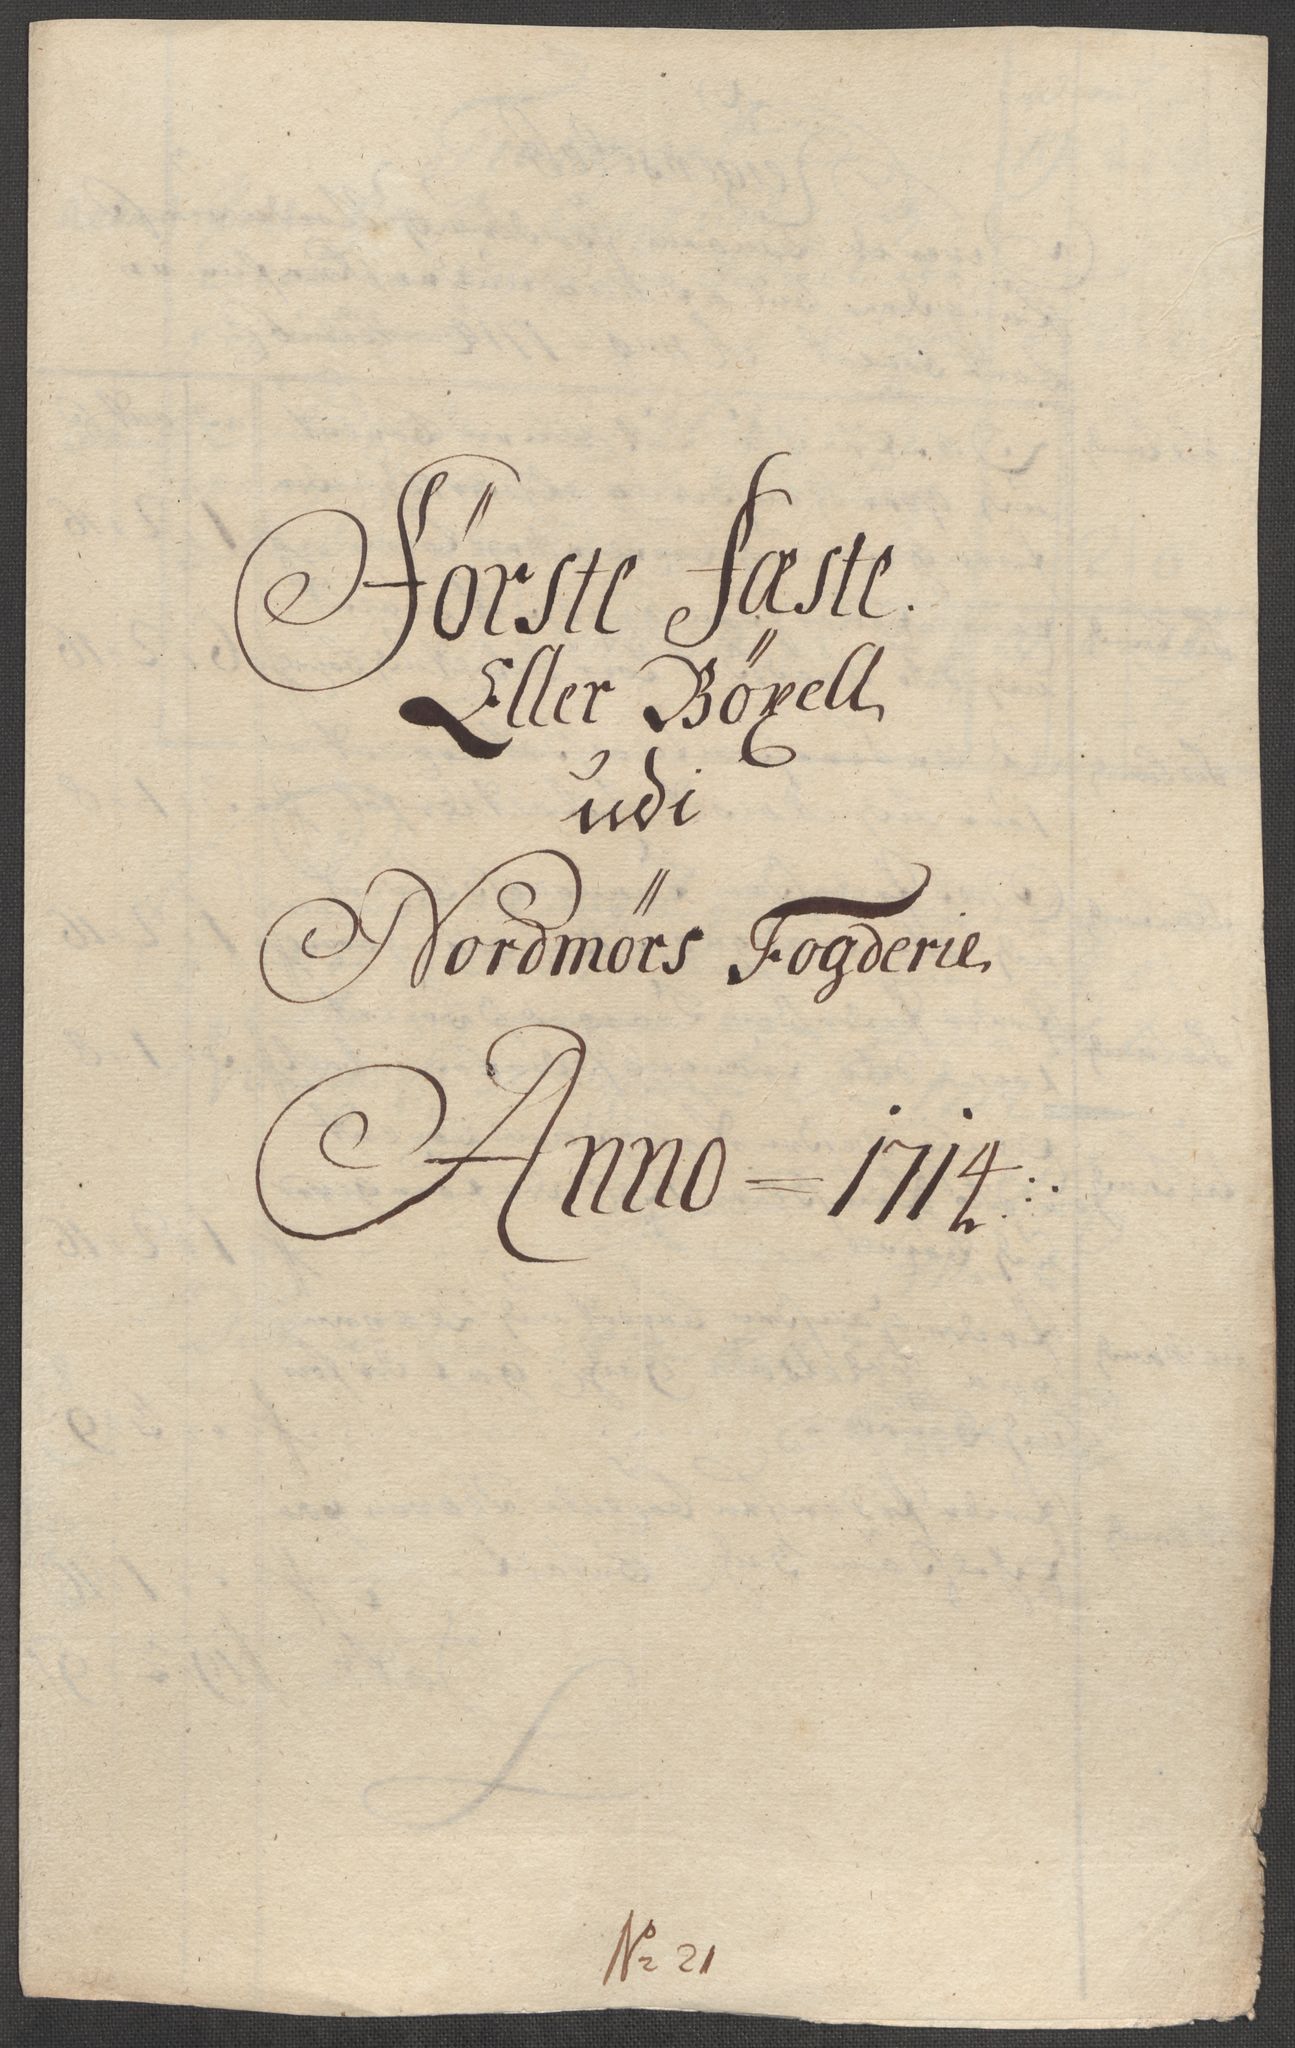 Förste Fæste.
Eller Böxell
udi
Nordmörs Fogderie
Anno = 1714
No 21